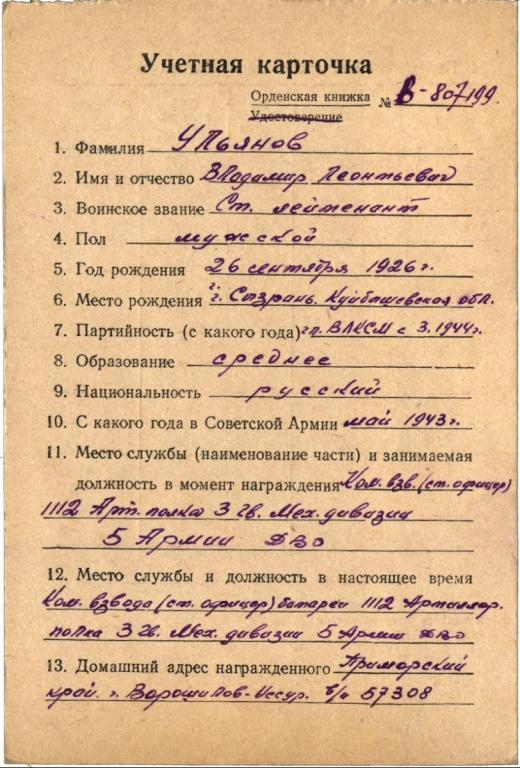 Учетная карточка
Орденская книжка № В-807199.
Удостоверение
1. Фамилия Ульянов
2. Имя и отчество Владимир Леонтьевич
3. Воинское звание Ст. лейтенант
4. Пол мужской
5. Год рождения 26 сентября 1926 г.
6. Место рождения г. Сызрань. Куйбышевская обл.
7. Партийность (с какого года) ВЛКСМ с 3.1944 г.
8. Образование среднее
9. Национальность русский
10. С какого года в Советской Армии май 1943 г.
11. Место службы (наименование части) и занимаемая
должность в момент награждения Ком. взв. (ст. офицер)
1112 Арт. полка 3 гв. Мех. дивизии
5 Армии ДВО
12. Место службы и должность в настоящее время
Ком. взвода (ст. офицер) батареи 1112 Артиллер.
полка 3 гв. Мех. дивизии 5 Армии ДВО
13. Домашний адрес награжденного Приморский
край. г. Ворошилов-Уссур. в/ч 57308